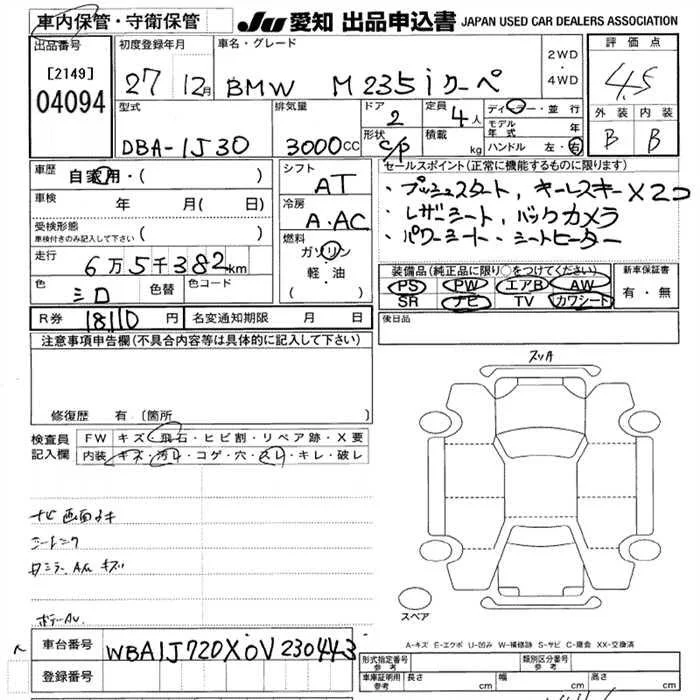 車内保管・守衛保管
JU 愛知 出品申込書 JAPAN USED CAR DEALERS ASSOCIATION
出品番号 [2149] 04094
初度登録年月 27 12月
車名・グレード BMW M235iクーペ
2WD・4WD
評価点 4.5
外装 B 内装 B
型式 DBA-1J30
排気量 3000CC
ドア 2
形状 C/P
定員 4人
積載 kg
ディーラー・並行
モデル年式 年
ハンドル 左・右
車歴 自家用・( )
車検 年 月( 日)
受検形態 ( )
車検付きのみ記入して下さい
走行 6万5千382km
色 シロ 色替 色コード
シフト AT
冷房 A.AC
燃料 ガソリン 軽・油 ( )
セールスポイント(正常に機能するものに限ります)
・プッシュスタート, キーレスキー×2コ
・レザーシート, バックカメラ
・パワーシート・シートヒーター
装備品(純正品に限り○をつけてください)
PS PW エアB AW
SR ナビ TV カワシート
新車保証書 有・無
後日品
R券 18110円 名変通知期限 月 日
注意事項申告欄(不具合内容等は具体的に記入して下さい)
修復歴 有 〔箇所
検査員記入欄
FW キズ・飛石・ヒビ割・リペア跡・X要
内装 キズ・汚レ・コゲ・穴・スレ・キレ・破レ
スリA
ナビ画面キズ
スペア
車台番号 WBA1J720X0V230443
登録番号
A-キズ E-エクボ U-凹み W-補修跡 S-サビ C-腐食 XX-交換済
形式指定番号 参考 類別区分番号 参考
車庫証明用 参考 長さ cm 幅 cm 高さ cm